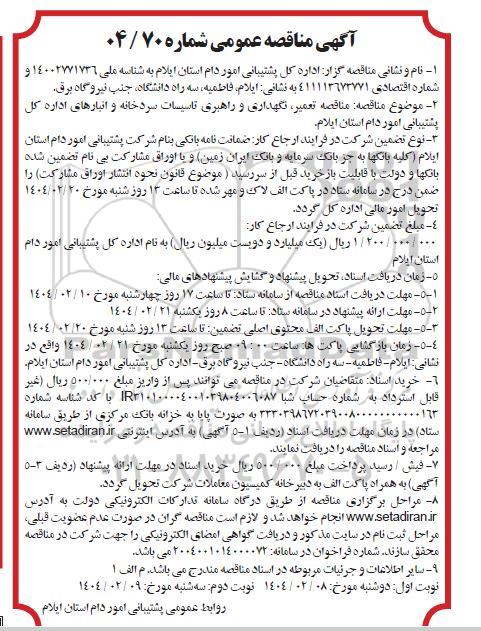 آگهی مناقصه عمومی شماره ۷۰ / ۰۴
۱- نام و نشانی مناقصه گزار: اداره کل پشتیبانی امور دام استان ایلام به شناسه ملی ۱۴۰۰۲۷۷۱۷۳۶ و
شماره اقتصادی ۴۱۱۱۱۳۶۷۳۷۷۱ به نشانی: ایلام، فاطمیه، سه راه دانشگاه، جنب نیروگاه برق.
۲- موضوع مناقصه: مناقصه تعمیر، نگهداری و راهبری تاسیسات سردخانه و انبارهای اداره کل
پشتیبانی امور دام استان ایلام.
۳- نوع تضمین شرکت در فرایند ارجاع کار: ضمانت نامه بانکی بنام شرکت پشتیبانی امور دام استان
ایلام (کلیه بانکها به جز بانک سرمایه و بانک ایران زمین) و یا اوراق مشارکت بی نام تضمین شده
بانکها و دولت با قابلیت بازخرید قبل از سررسید ( موضوع قانون نحوه انتشار اوراق مشارکت) را
ضمن درج در سامانه ستاد در پاکت الف لاک و مهر شده تا ساعت ۱۳ روز شنبه مورخ ۱۴۰۴/۰۲/۲۰
تحویل امور مالی اداره کل گردد.
۴- مبلغ تضمین شرکت در فرایند ارجاع کار:
۱/۲۰۰/۰۰۰/۰۰۰ ریال (یک میلیارد و دویست میلیون ریال) به نام اداره کل پشتیبانی امور دام
استان ایلام
۵- زمان دریافت اسناد، تحویل پیشنهاد و گشایش پیشنهادهای مالی:
۵-۱- مهلت دریافت اسناد مناقصه از سامانه ستاد: تا ساعت ۱۷ روز چهارشنبه مورخ ۱۴۰۴/۰۲/۱۰
۵-۲- مهلت ارائه پیشنهاد در سامانه ستاد: تا ساعت ۸ روز یکشنبه ۱۴۰۴/۰۲/۲۱
۵-۳- مهلت تحویل پاکت الف محتوی اصلی تضمین: تا ساعت ۱۳ روز شنبه مورخ ۱۴۰۴/۰۲/۲۰
۵-۴- زمان بازگشایی پاکت ها: ساعت ۰۹:۰۰ صبح روز یکشنبه مورخ ۱۴۰۴/۰۲/۲۱ واقع در
نشانی: ایلام- فاطمیه- سه راه دانشگاه- جنب نیروگاه برق- اداره کل پشتیبانی امور دام استان ایلام.
۶- خرید اسناد: متقاضیان شرکت در مناقصه می توانند پس از واریز مبلغ ۵۰۰/۰۰۰ ریال (غیر
قابل استرداد به شماره حساب شبا با کد شناسه شماره
به صورت پایا به خزانه بانک مرکزی از طریق سامانه
ستاد) در زمان مهلت دریافت اسناد (ردیف ۱-۵ آگهی) به آدرس اینترنتی www.setadiran.ir
مراجعه و اسناد مناقصه را دریافت نمایند.
۷- فیش / رسید پرداخت مبلغ ۵۰۰/۰۰۰ ریال خرید اسناد در مهلت ارائه پیشنهاد (ردیف ۳-۵
آگهی) به همراه پاکت الف به دبیرخانه کمیسیون معاملات شرکت تحویل گردد.
۸- مراحل برگزاری مناقصه از طریق درگاه سامانه تدارکات الکترونیکی دولت به آدرس
www.setadiran.ir انجام خواهد شد و لازم است مناقصه گران در صورت عدم عضویت قبلی،
مراحل ثبت نام در سایت مذکور و دریافت گواهی امضای الکترونیکی را جهت شرکت در مناقصه
محقق سازند. شماره فراخوان در سامانه: ۲۰۰۴۰۰۱۰۱۴۰۰۰۰۷۲ می باشد.
۹- سایر اطلاعات و جزئیات مربوطه در اسناد مناقصه مندرج می باشد. م الف ۱
نوبت اول: دوشنبه مورخ: ۱۴۰۴/۰۲/۰۸ نوبت دوم: سه‌شنبه مورخ: ۱۴۰۴/۰۲/۰۹
روابط عمومی پشتیبانی امور دام استان ایلام